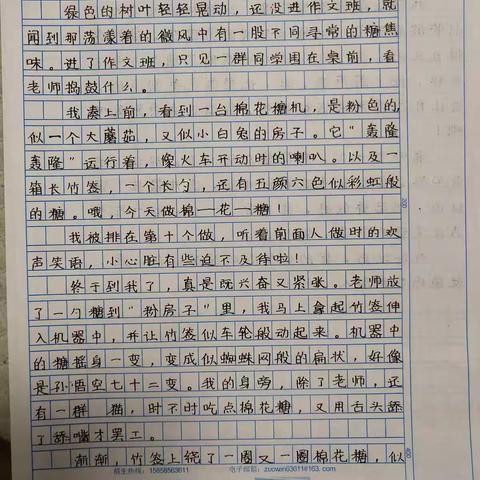 绿色的树叶轻轻晃动，还没进作文班，就
闻到那荡漾着的微风中有一股不同寻常的糖焦
味。进了作文班，只见一群同学围在桌前，看
老师捣鼓什么。
我凑上前，看到一台棉花糖机，是粉色的，
似一个大蘑茹，又似小白兔的房子。它“轰隆
轰隆”运行着，像火车开动时的喇叭。以及一
箱长竹签，一个长勺，还有五颜六色似彩虹般
的糖。哦，今天做棉—花—糖！
我被排在第十个做，听着前面人做时的欢
声笑语，小心脏有些迫不及待啦！
终于到我了，真是既兴奋又紧张。老师放
了一勺糖到“粉房子”里，我马上拿起竹签伸
入机器中，并让竹签似车轮般动起来。机器中
的糖摇身一变，变成似蜘蛛网般的扁状，好像
是孙悟空七十二变。我的身旁，除了老师，还
有一群 猫，时不时吃点棉花糖，又用舌头舔
了舔嘴才罢工。
渐渐，竹签上绕了一圈又一圈棉花糖，似
200
400
招生热线：15658563611 电子邮箱：zuowen03611@163.com